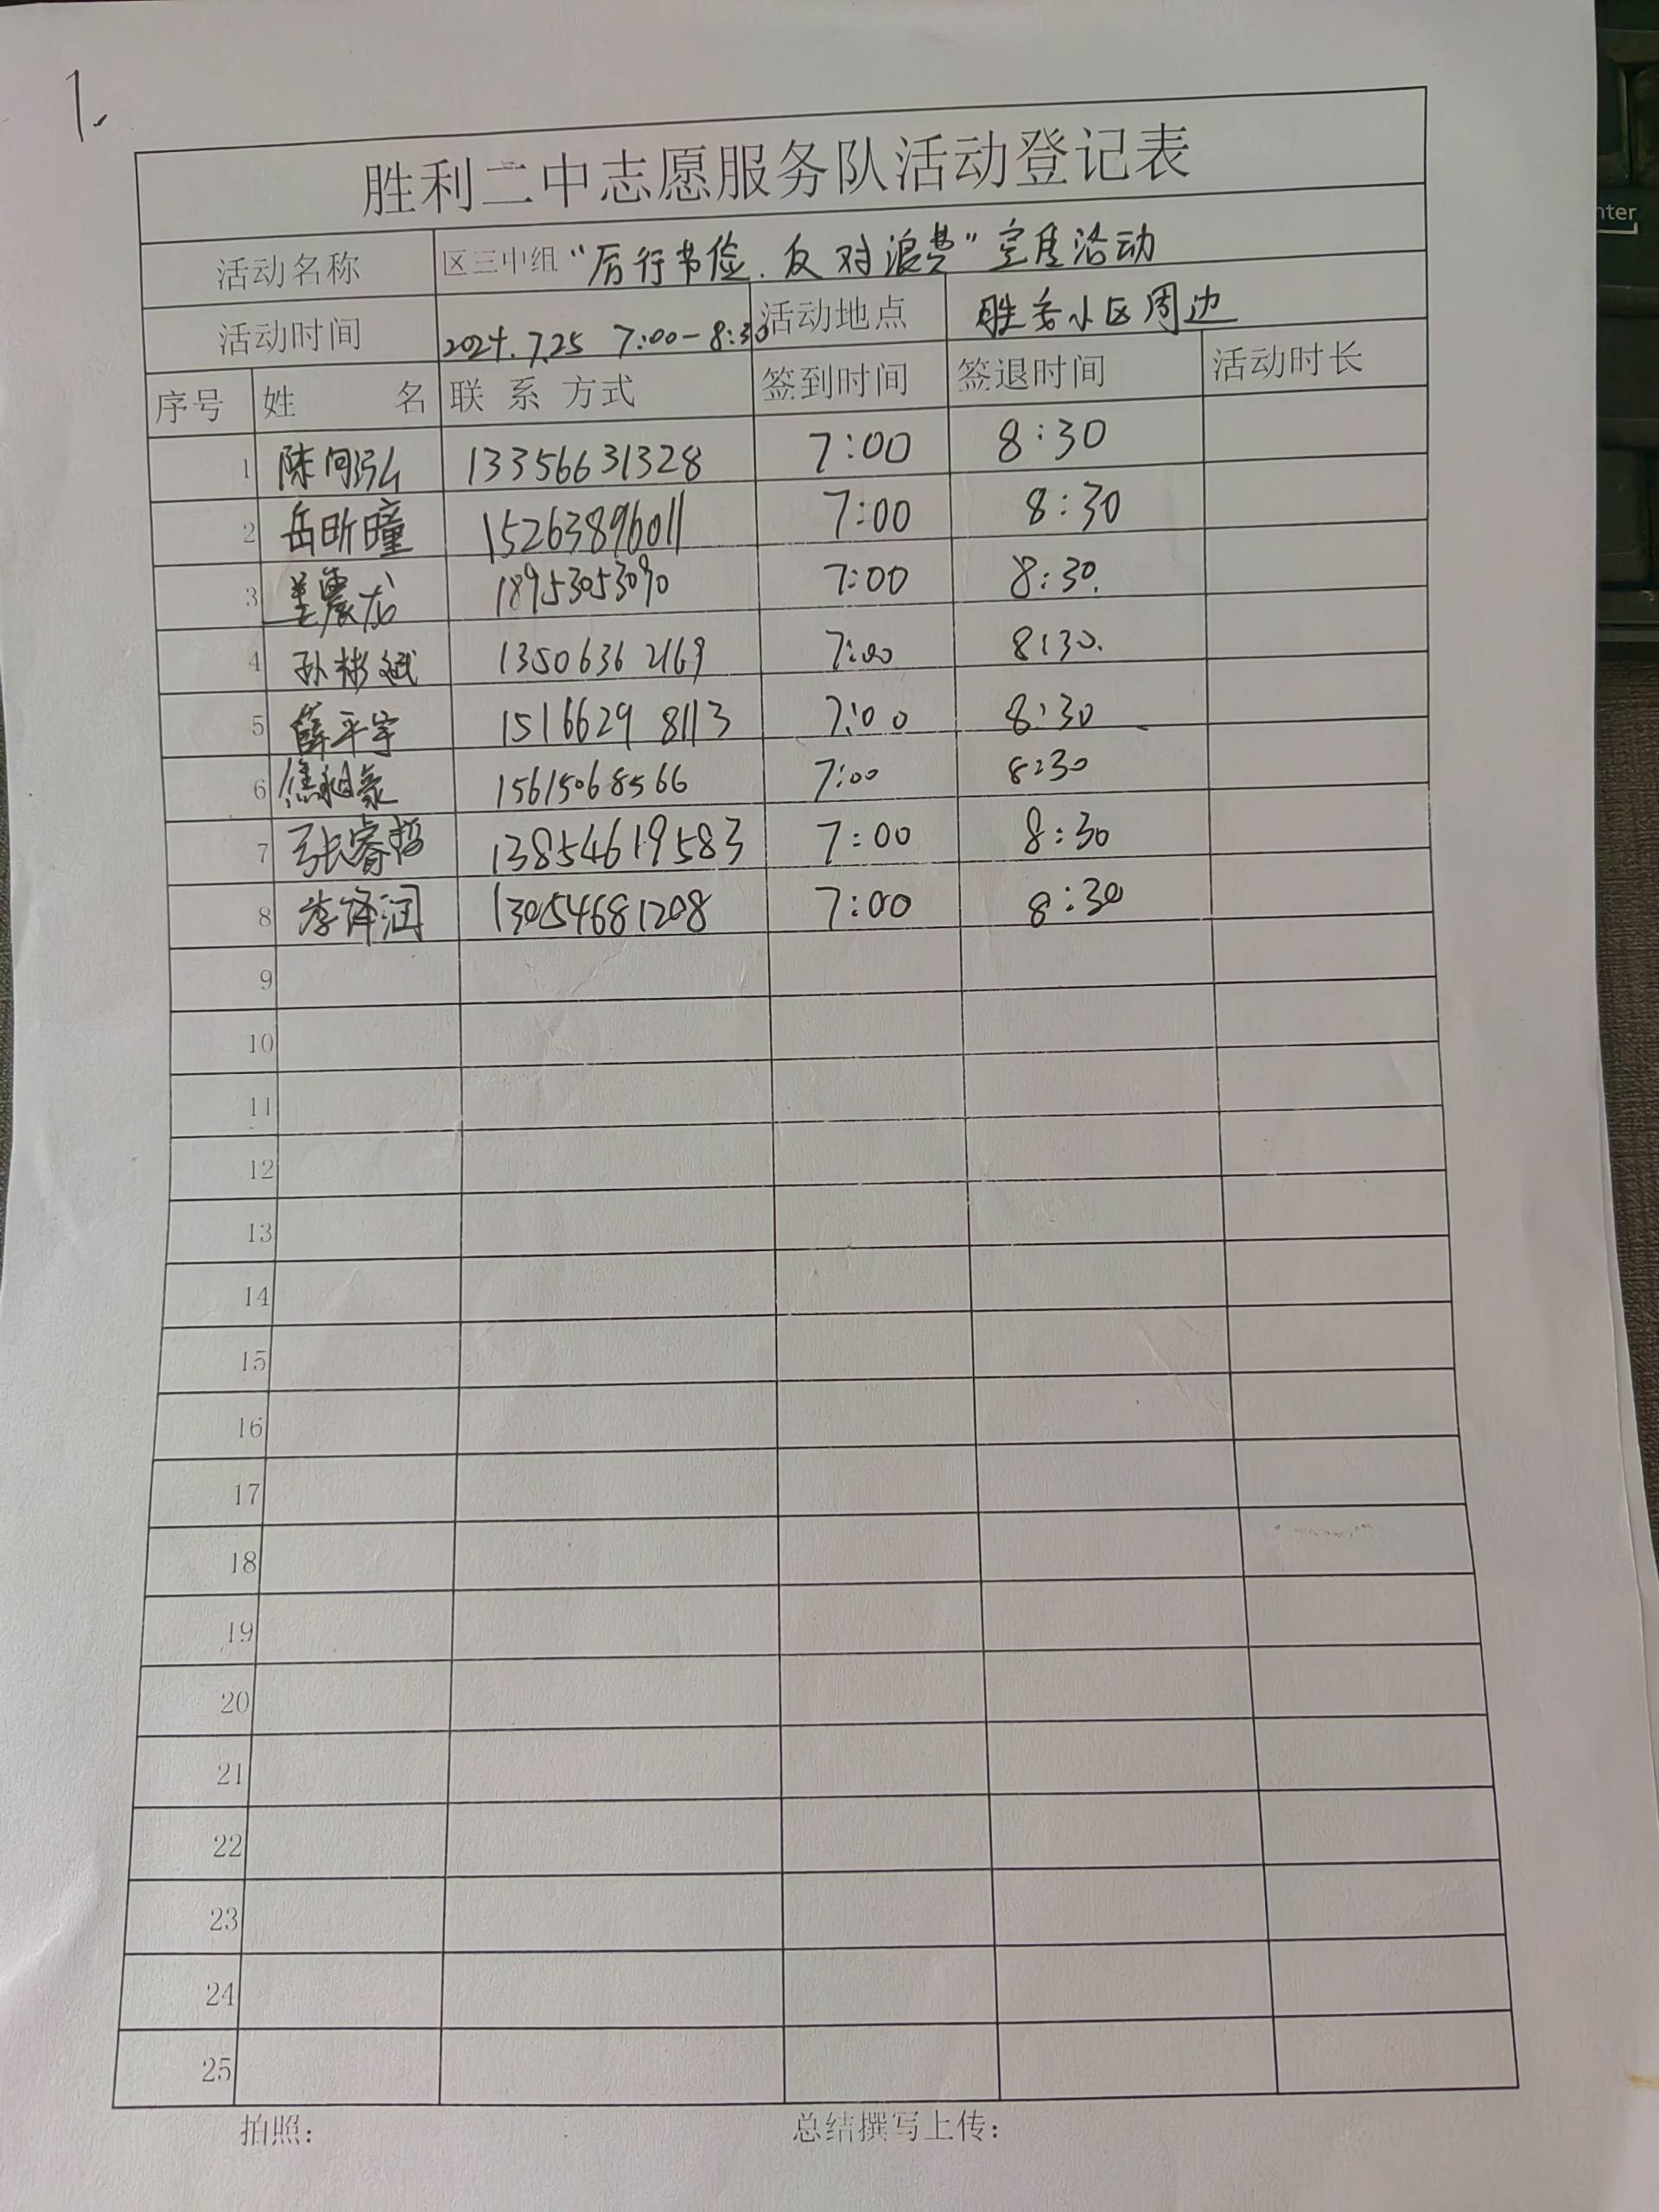 1.
胜利二中志愿服务队活动登记表
活动名称 区三中组“厉行节俭、反对浪费”宣传活动
活动时间 2024.7.25 7:00-8:30 活动地点 胜香小区周边
序号 姓 名 联 系 方式 签到时间 签退时间 活动时长
1 陈同弘 13356631328 7:00 8:30
2 岳昕曈 15263896011 7:00 8:30
3 姜震龙 18953053090 7:00 8:30.
4 孙彬斌 13506362169 7:00 8:30.
5 薛平宇 15166298113 7:00 8:30
6 15615068566 7:00 8:30
7 张睿哲 13854619583 7:00 8:30
8 李泽润 13054681208 7:00 8:30
9
10
11
12
13
14
15
16
17
18
19
20
21
22
23
24
25
拍照： 总结撰写上传：
nter